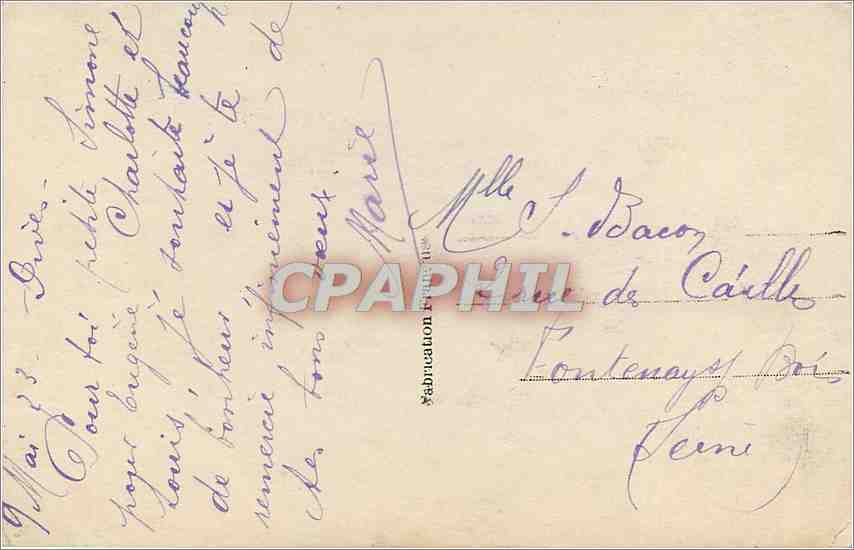 9 Mai 23 - Dives -
Pour toi petite Simone
pour Eugène Charlotte et
Louis je souhaite beaucoup
de bonheur et je te
remercie infiniment de
tes bons vœux
Marie
Fabrication Française
Mlle S. Bacon
rue de
Fontenay s/ Bois
Seine
CPAPHIL